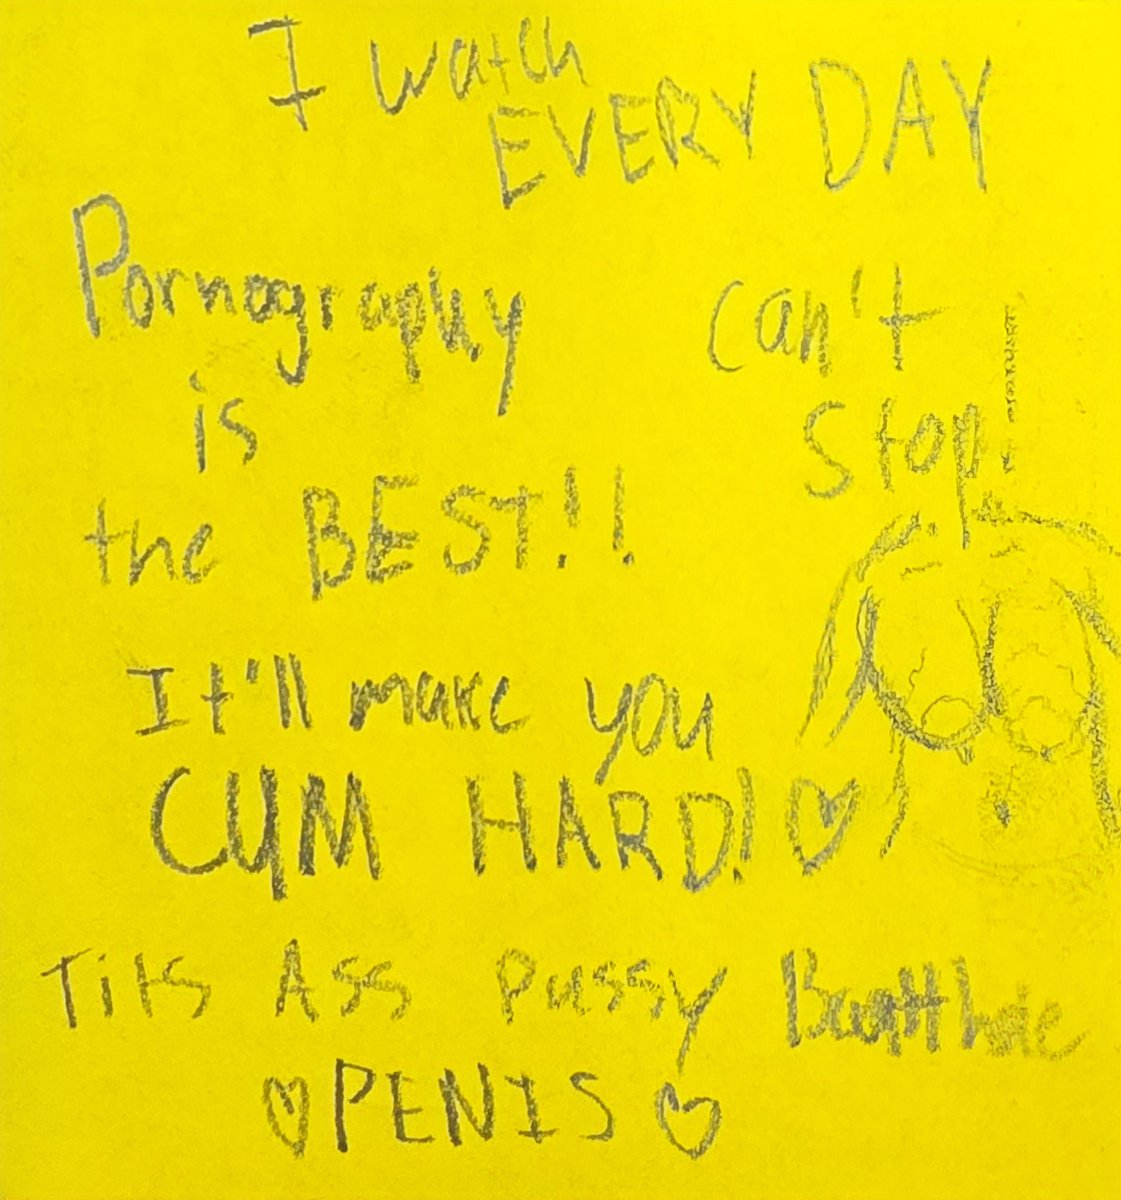 I watch
EVERY DAY
Pornography
is
the BEST!!
can't
stop!
It'll make you
CUM HARD!♡
Tits Ass Pussy Butthole
♡PENIS♡